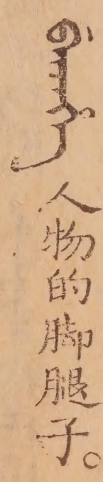 ᠪᡝᡨᡥᡝ 人物的脚腿子。